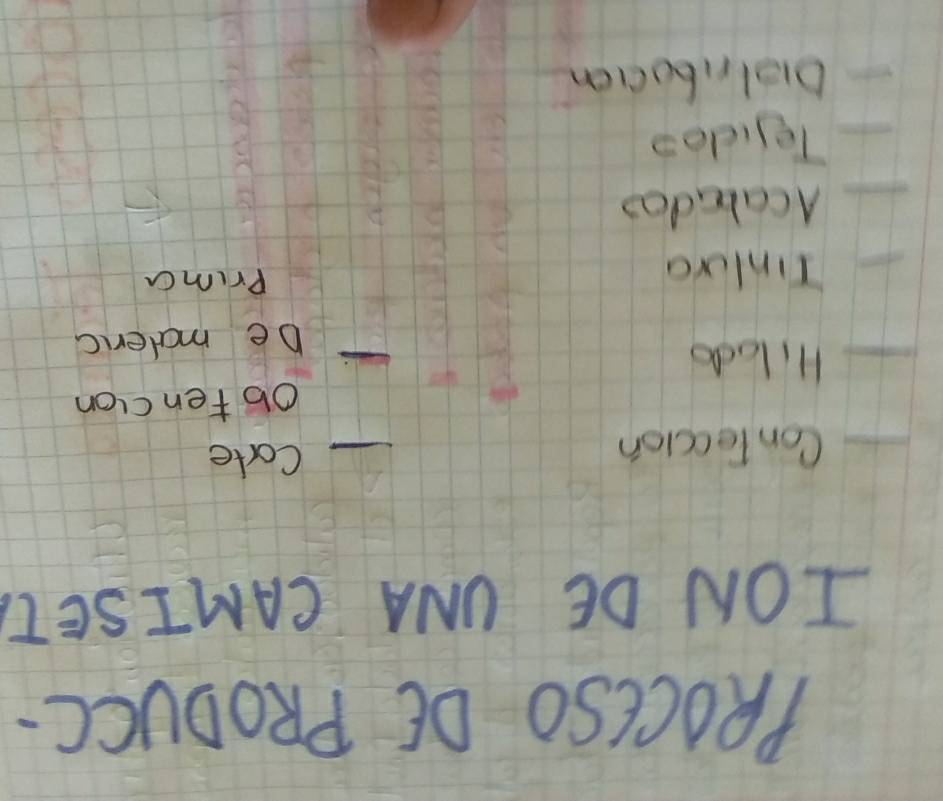 PROCESO DE PRODUCC-
ION DE UNA CAMISETA
- Confección
- Hilado
- Tintura
- Acabados
- Tejidos
- Distribucion
- Corte
- Obtencion
De materia
Prima